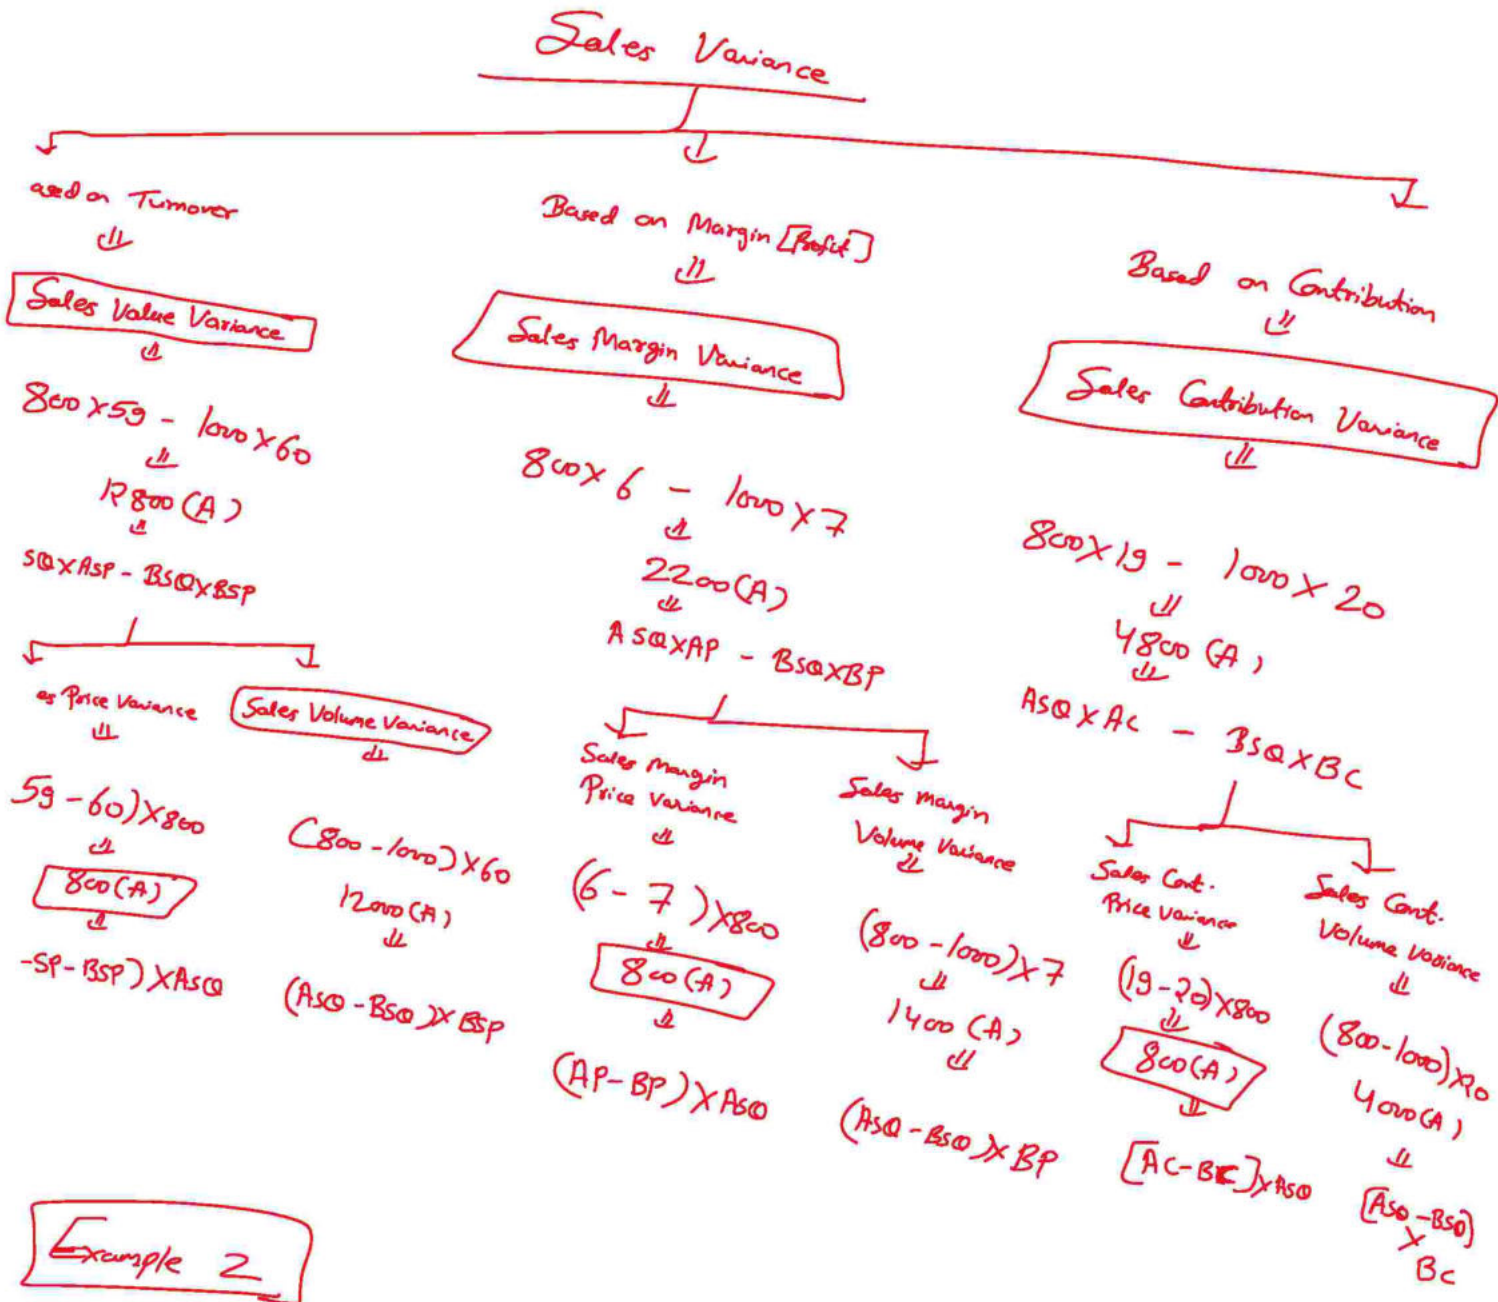 Sales Variance
ased on Turnover
Sales Value Variance
800 X 59 - 1000 X 60
12800 (A)
SQ X ASP - BSQ X BSP
es Price Variance
59 - 60) X 800
800 (A)
-SP - BSP) X ASQ
Sales Volume Variance
(800 - 1000) X 60
12000 (A)
(ASQ - BSQ) X BSP
Based on Margin [Profit]
Sales Margin Variance
800 X 6 - 1000 X 7
2200 (A)
ASQ X AP - BSQ X BP
Sales Margin
Price Variance
(6 - 7) X 800
800 (A)
(AP - BP) X ASQ
Sales Margin
Volume Variance
(800 - 1000) X 7
1400 (A)
(ASQ - BSQ) X BP
Based on Contribution
Sales Contribution Variance
800 X 19 - 1000 X 20
4800 (A)
ASQ X AC - BSQ X BC
Sales Cont.
Price Variance
(19 - 20) X 800
800 (A)
[AC - BC] X ASQ
Sales Cont.
Volume Variance
(800 - 1000) X 20
4000 (A)
[ASQ - BSQ]
X
BC
Example 2